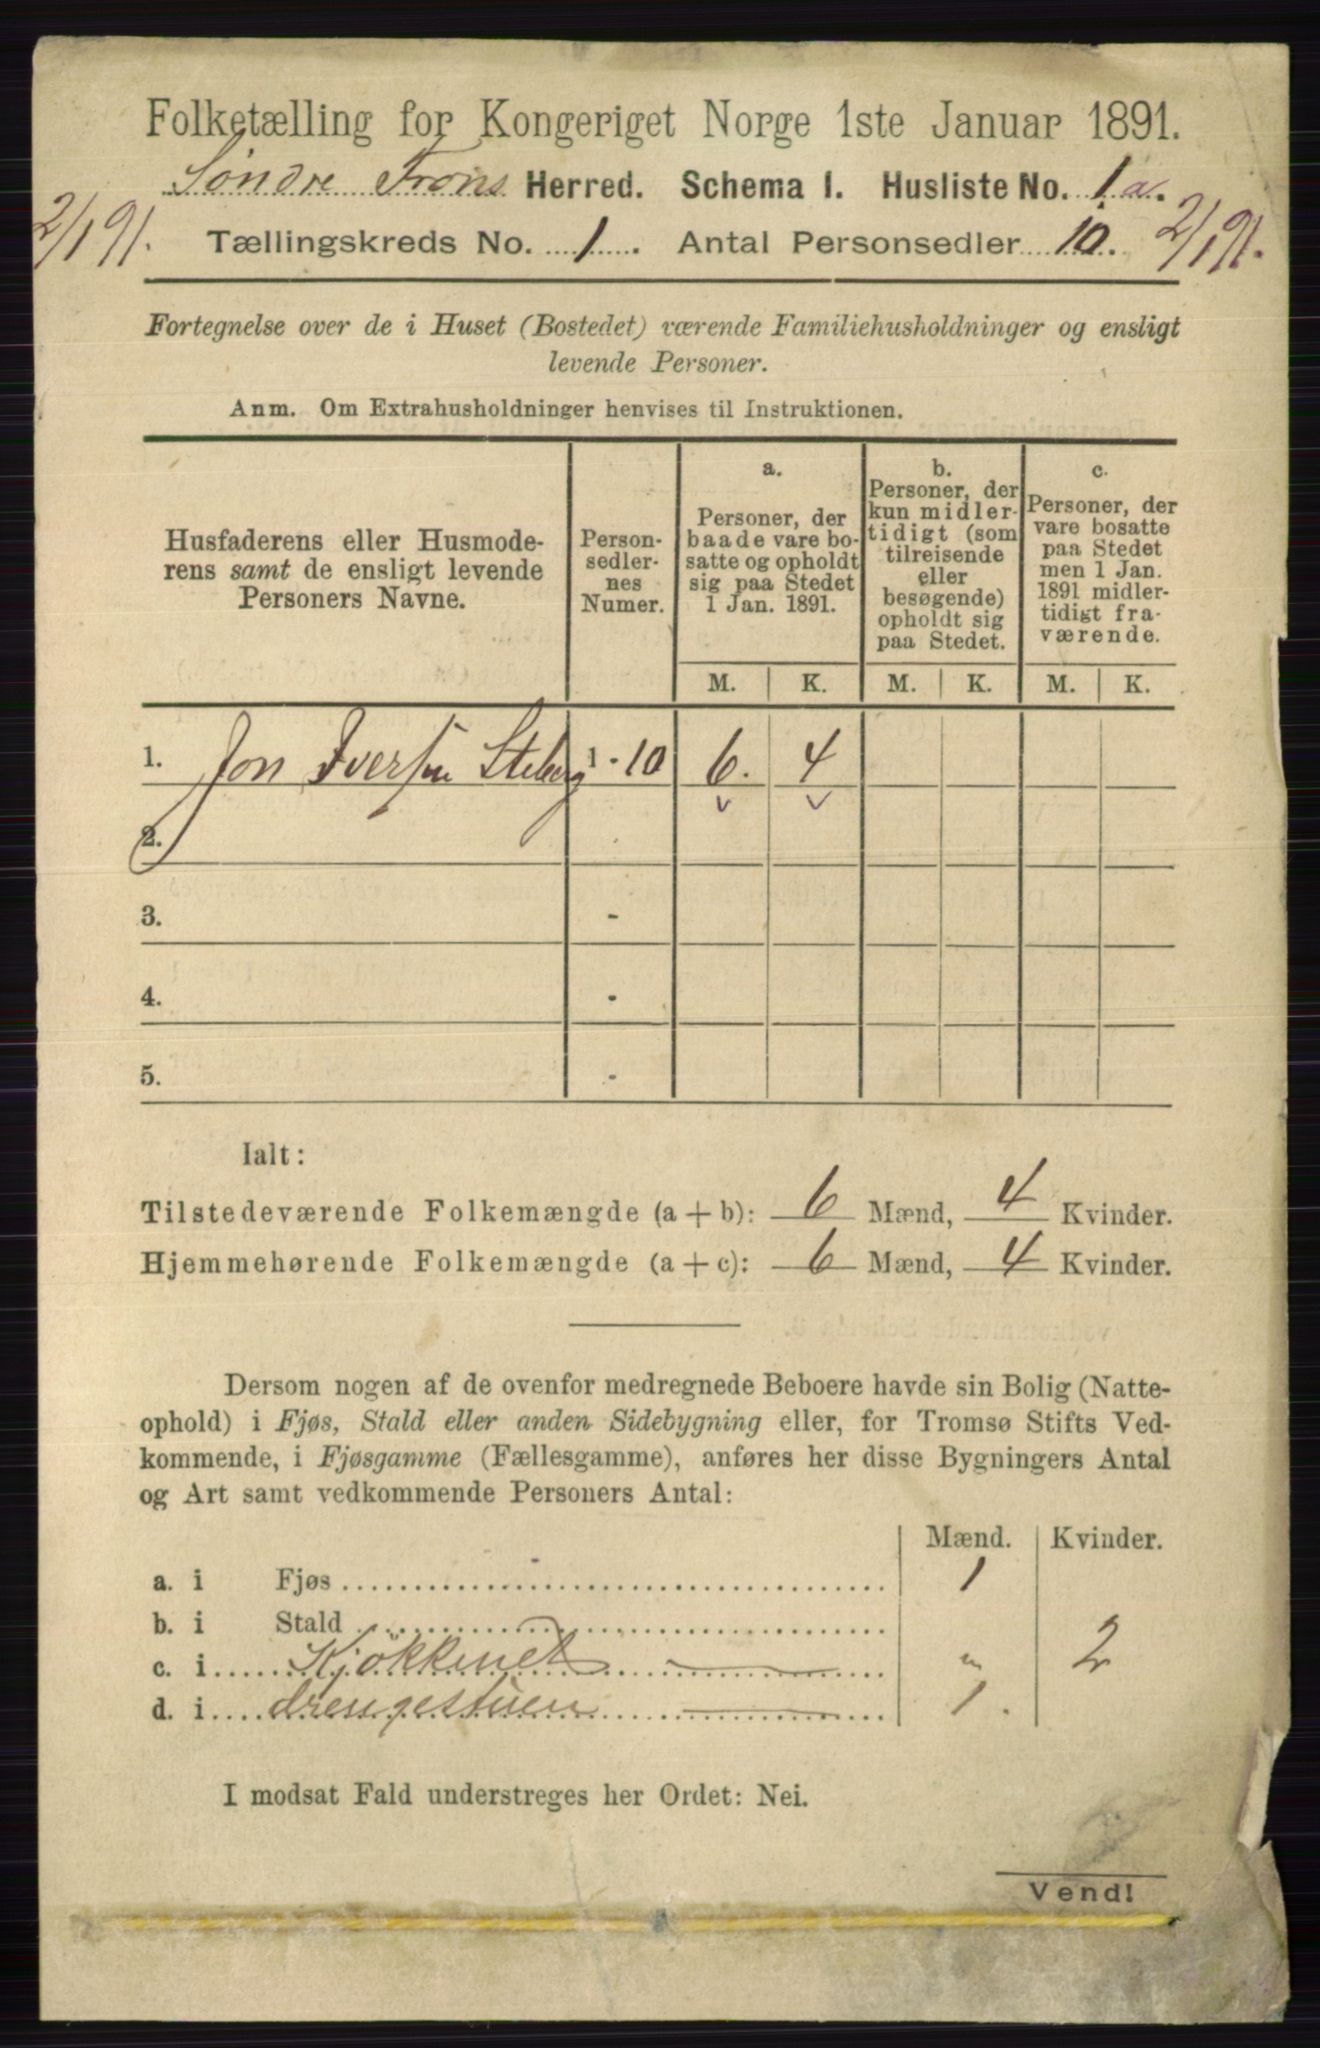 Folketælling for Kongeriget Norge 1ste Januar 1891.
Søndre Frons Herred. Schema I. Husliste No. 1a.
2/1 91. Tællingskreds No. 1. Antal Personsedler 10. 2/1 91.
Fortegnelse over de i Huset (Bostedet) værende Familiehusholdninger og ensligt
levende Personer.
Anm. Om Extrahusholdninger henvises til Instruktionen.
Husfaderens eller Husmode-
rens samt de ensligt levende
Personers Navne.
Person-
sedler-
nes
Numer.
a.
Personer, der
baade vare bo-
satte og opholdt
sig paa Stedet
1 Jan. 1891.
b.
Personer, der
kun midler-
tidigt (som
tilreisende
eller
besøgende)
opholdt sig
paa Stedet.
c.
Personer, der
vare bosatte
paa Stedet
men 1 Jan.
1891 midler-
tidigt fra-
værende.
M. K. M. K. M. K.
1. Jon Iversen Steberg 1 - 10 6. 4
2. -
3. -
4. -
5. -
Ialt:
Tilstedeværende Folkemængde (a + b): 6 Mænd, 4 Kvinder.
Hjemmehørende Folkemængde (a + c): 6 Mænd, 4 Kvinder.
Dersom nogen af de ovenfor medregnede Beboere havde sin Bolig (Natte-
ophold) i Fjøs, Stald eller anden Sidebygning eller, for Tromsø Stifts Ved-
kommende, i Fjøsgamme (Fællesgamme), anføres her disse Bygningers Antal
og Art samt vedkommende Personers Antal:
Mænd. Kvinder.
a. i Fjøs 1
b. i Stald
c. i Kjøkkenet " 2
d. i drengestuen 1.
I modsat Fald understreges her Ordet: Nei.
Vend!